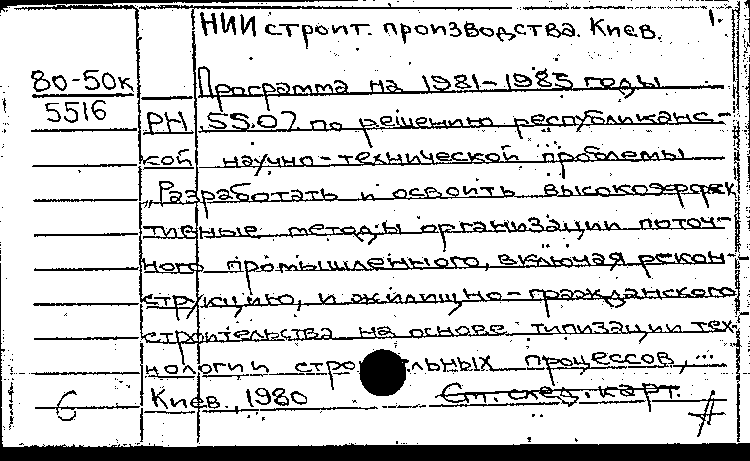 1.
НИИ строит. производства. Киев.
80-50к
5516
Программа на 1981-1985 годы
РН.55.07. по решению республиканс-
кой научно-технической проблемы
„Разработать и освоить высокоэффек
тивные методы организации поточ-
ного промышленного, включая рекон-
струкцию, и жилищно-гражданского
строительства на основе типизации тех
нологии строительных процессов, ...
6
Киев, 1980
См. след. карт.
А